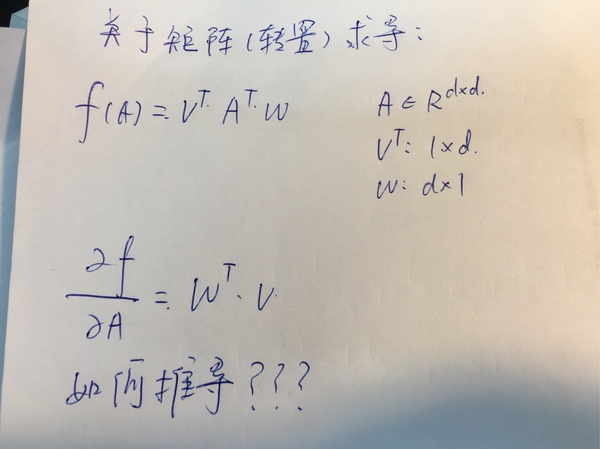 关于矩阵(转置)求导:
f(A) = V^T A^T W
A ∈ R^{d×d}.
V^T: 1×d.
W: d×1
∂f/∂A = W^T · V
如何推导???